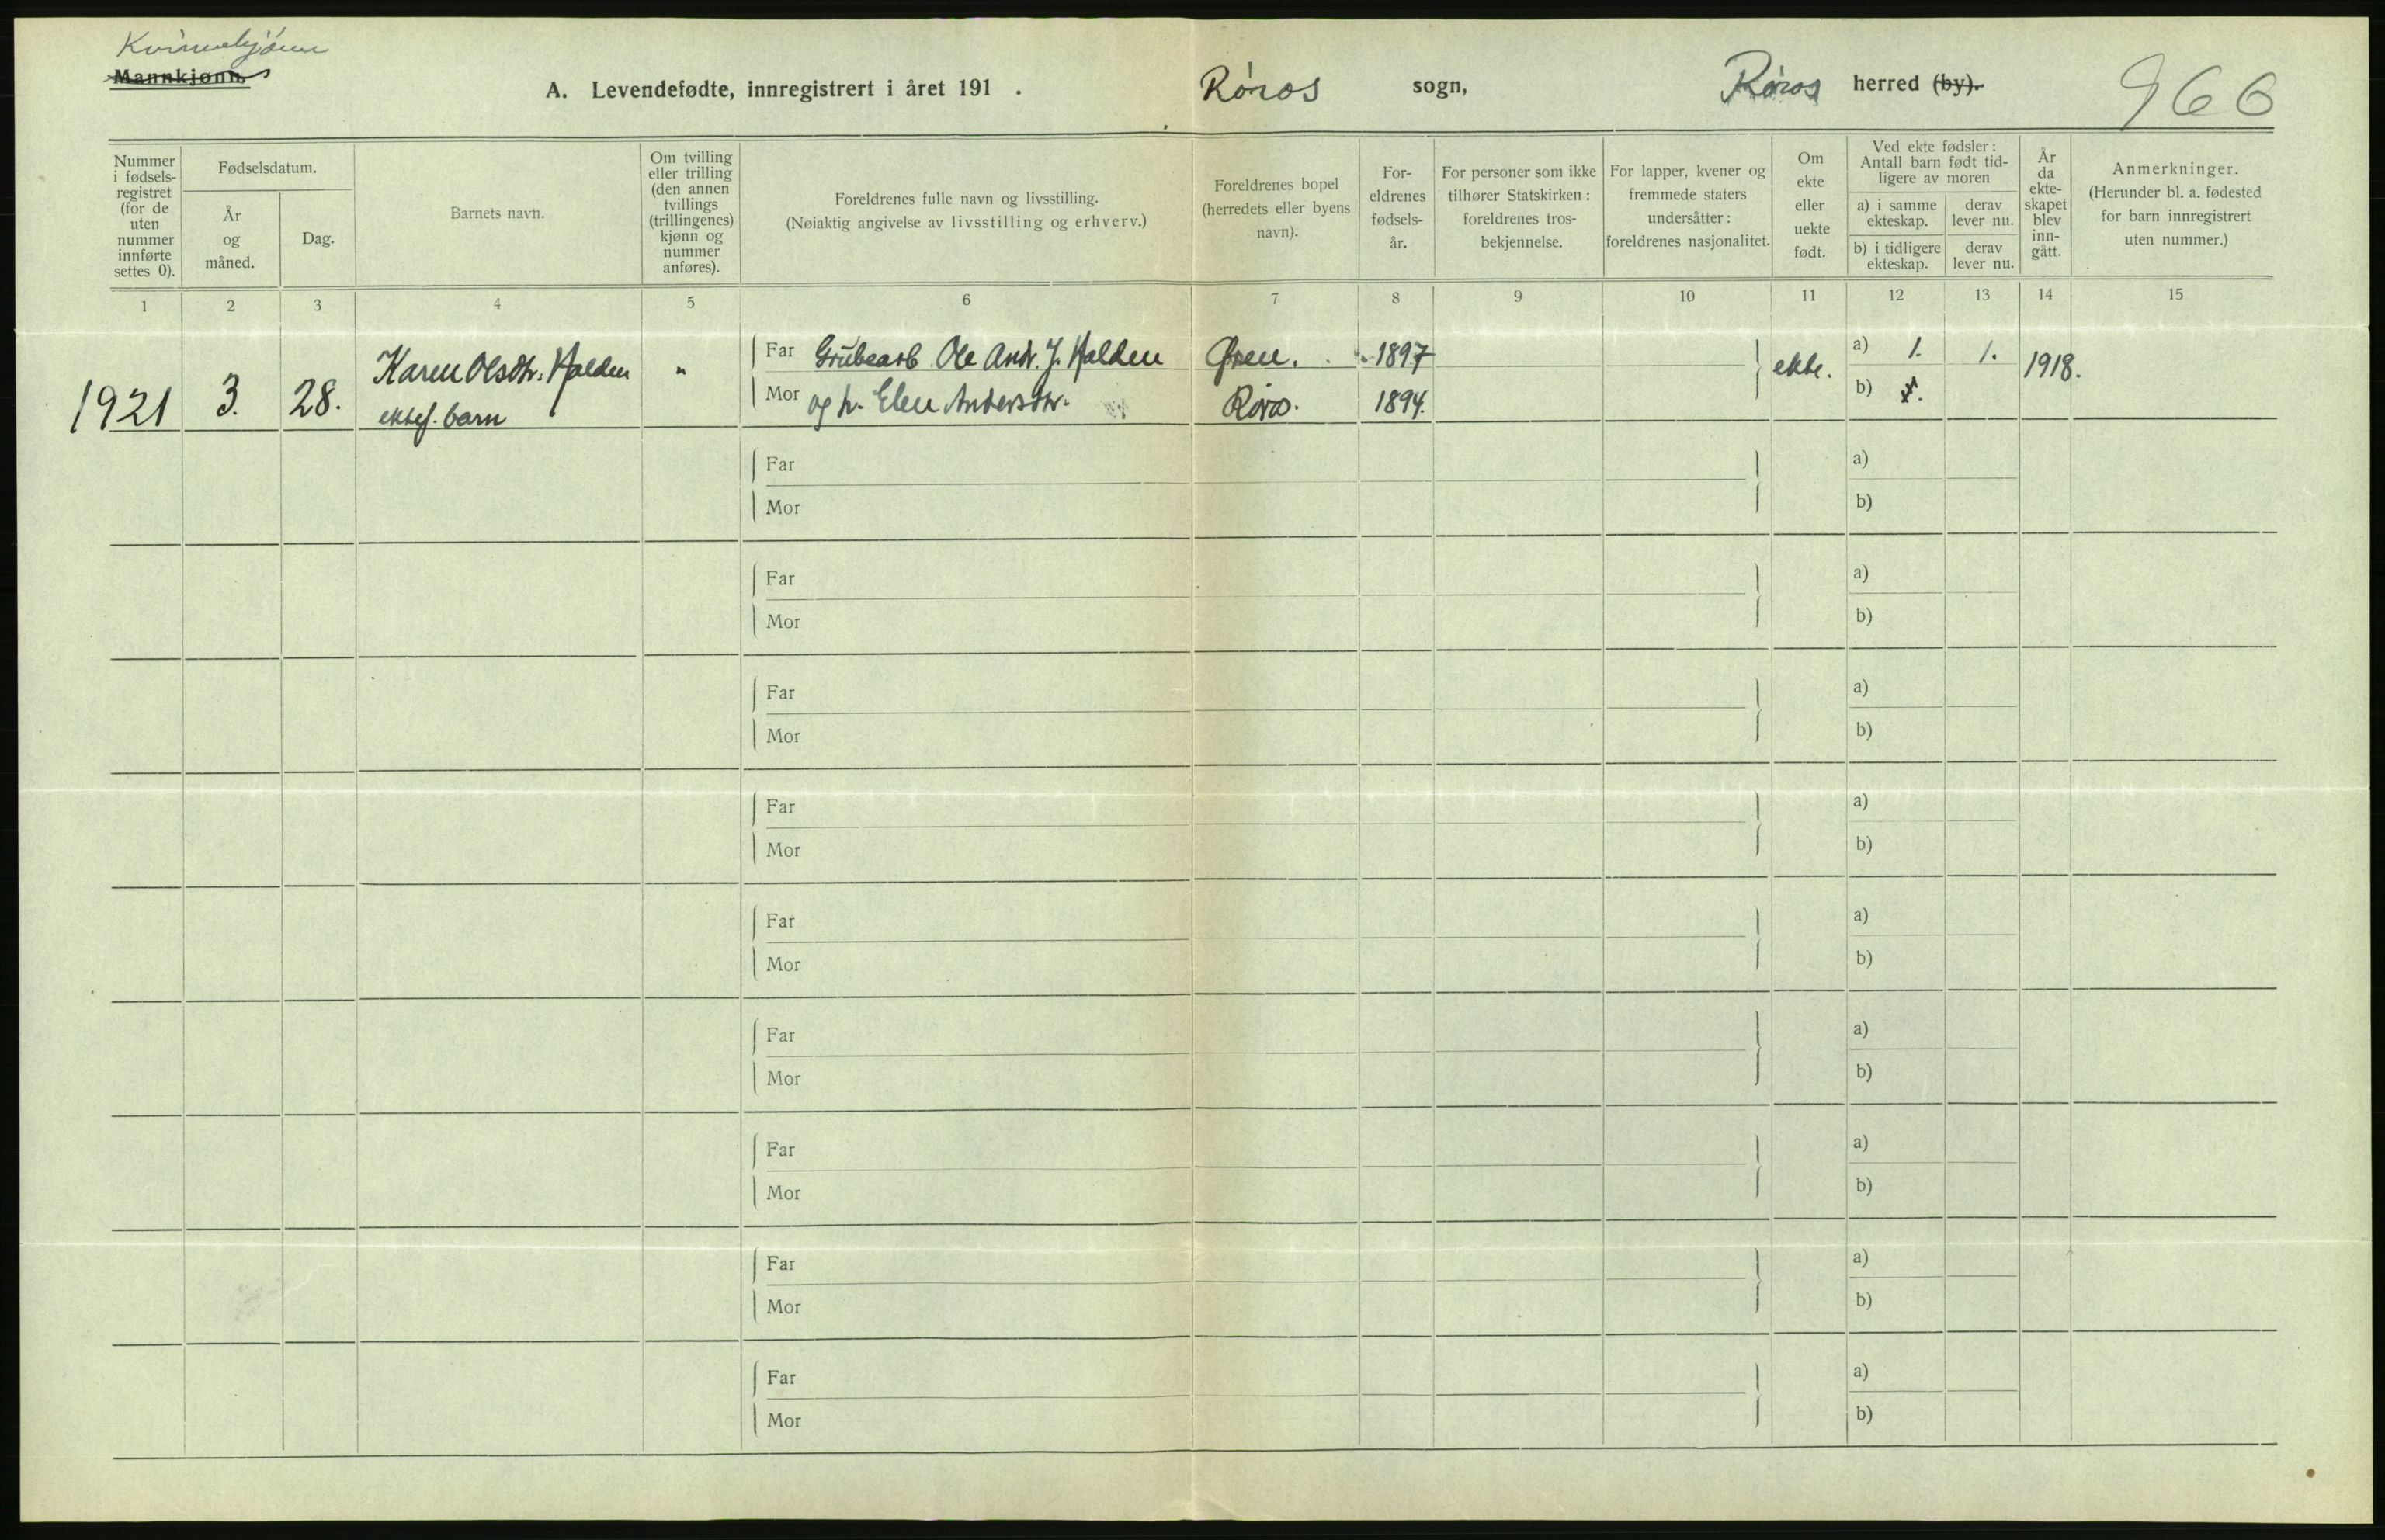 Kvinnekjønn
Mannkjønn.
A. Levendefødte, innregistrert i året 191 . Røros sogn, Røros herred (by). 966
Nummer i fødselsregistret (for de uten nummer innførte settes 0).
Fødselsdatum.
År og måned.
Dag.
Barnets navn.
Om tvilling eller trilling (den annen tvillings (trillingenes) kjønn og nummer anføres).
Foreldrenes fulle navn og livsstilling.
(Nøiaktig angivelse av livsstilling og erhverv.)
Foreldrenes bopel (herredets eller byens navn).
For-eldrenes fødsels-år.
For personer som ikke tilhører Statskirken: foreldrenes tros-bekjennelse.
For lapper, kvener og fremmede staters undersåtter: foreldrenes nasjonalitet.
Om ekte eller uekte født.
Ved ekte fødsler: Antall barn født tid-ligere av moren
a) i samme ekteskap.
derav lever nu.
b) i tidligere ekteskap.
derav lever nu.
År da ekte-skapet blev inn-gått.
Anmerkninger.
(Herunder bl. a. fødested for barn innregistrert uten nummer.)
1 2 3 4 5 6 7 8 9 10 11 12 13 14 15
1921 3. 28. Karen Olsdtr. Halden " Far Grubearb Ole Andr. J. Halden 1897 ekte. a) 1. 1. 1918.
ektef. barn Mor og h. Elen Andersdtr. Røros. 1894. b)
Far a)
Mor b)
Far a)
Mor b)
Far a)
Mor b)
Far a)
Mor b)
Far a)
Mor b)
Far a)
Mor b)
Far a)
Mor b)
Far a)
Mor b)
Far a)
Mor b)